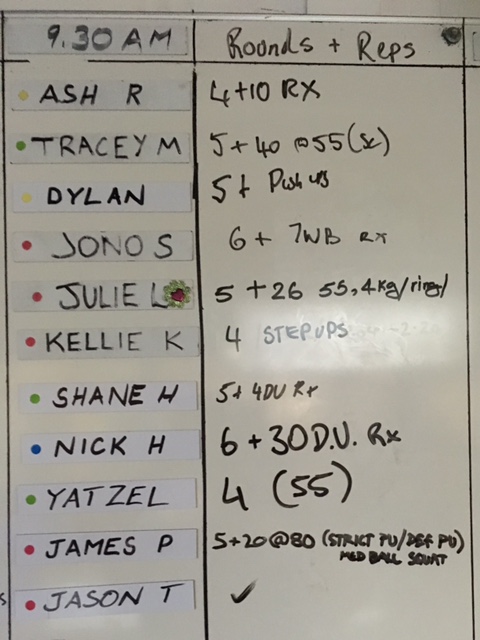 9.30 AM Rounds + Reps
ASH R 4+10 RX
TRACEY M 5+40 @55(Sc)
DYLAN 5+ Push ups
JONO S 6+ 7WB RX
JULIE L 5 +26 55, 4kg/rings/
KELLIE K 4 STEP UPS
SHANE H 5+ 4DU Rx
NICK H 6+30 D.U. Rx
YATZEL 4 (55)
JAMES P 5+20@80 (STRICT PU/DEF PU)
MED BALL SQUAT
JASON T ✓